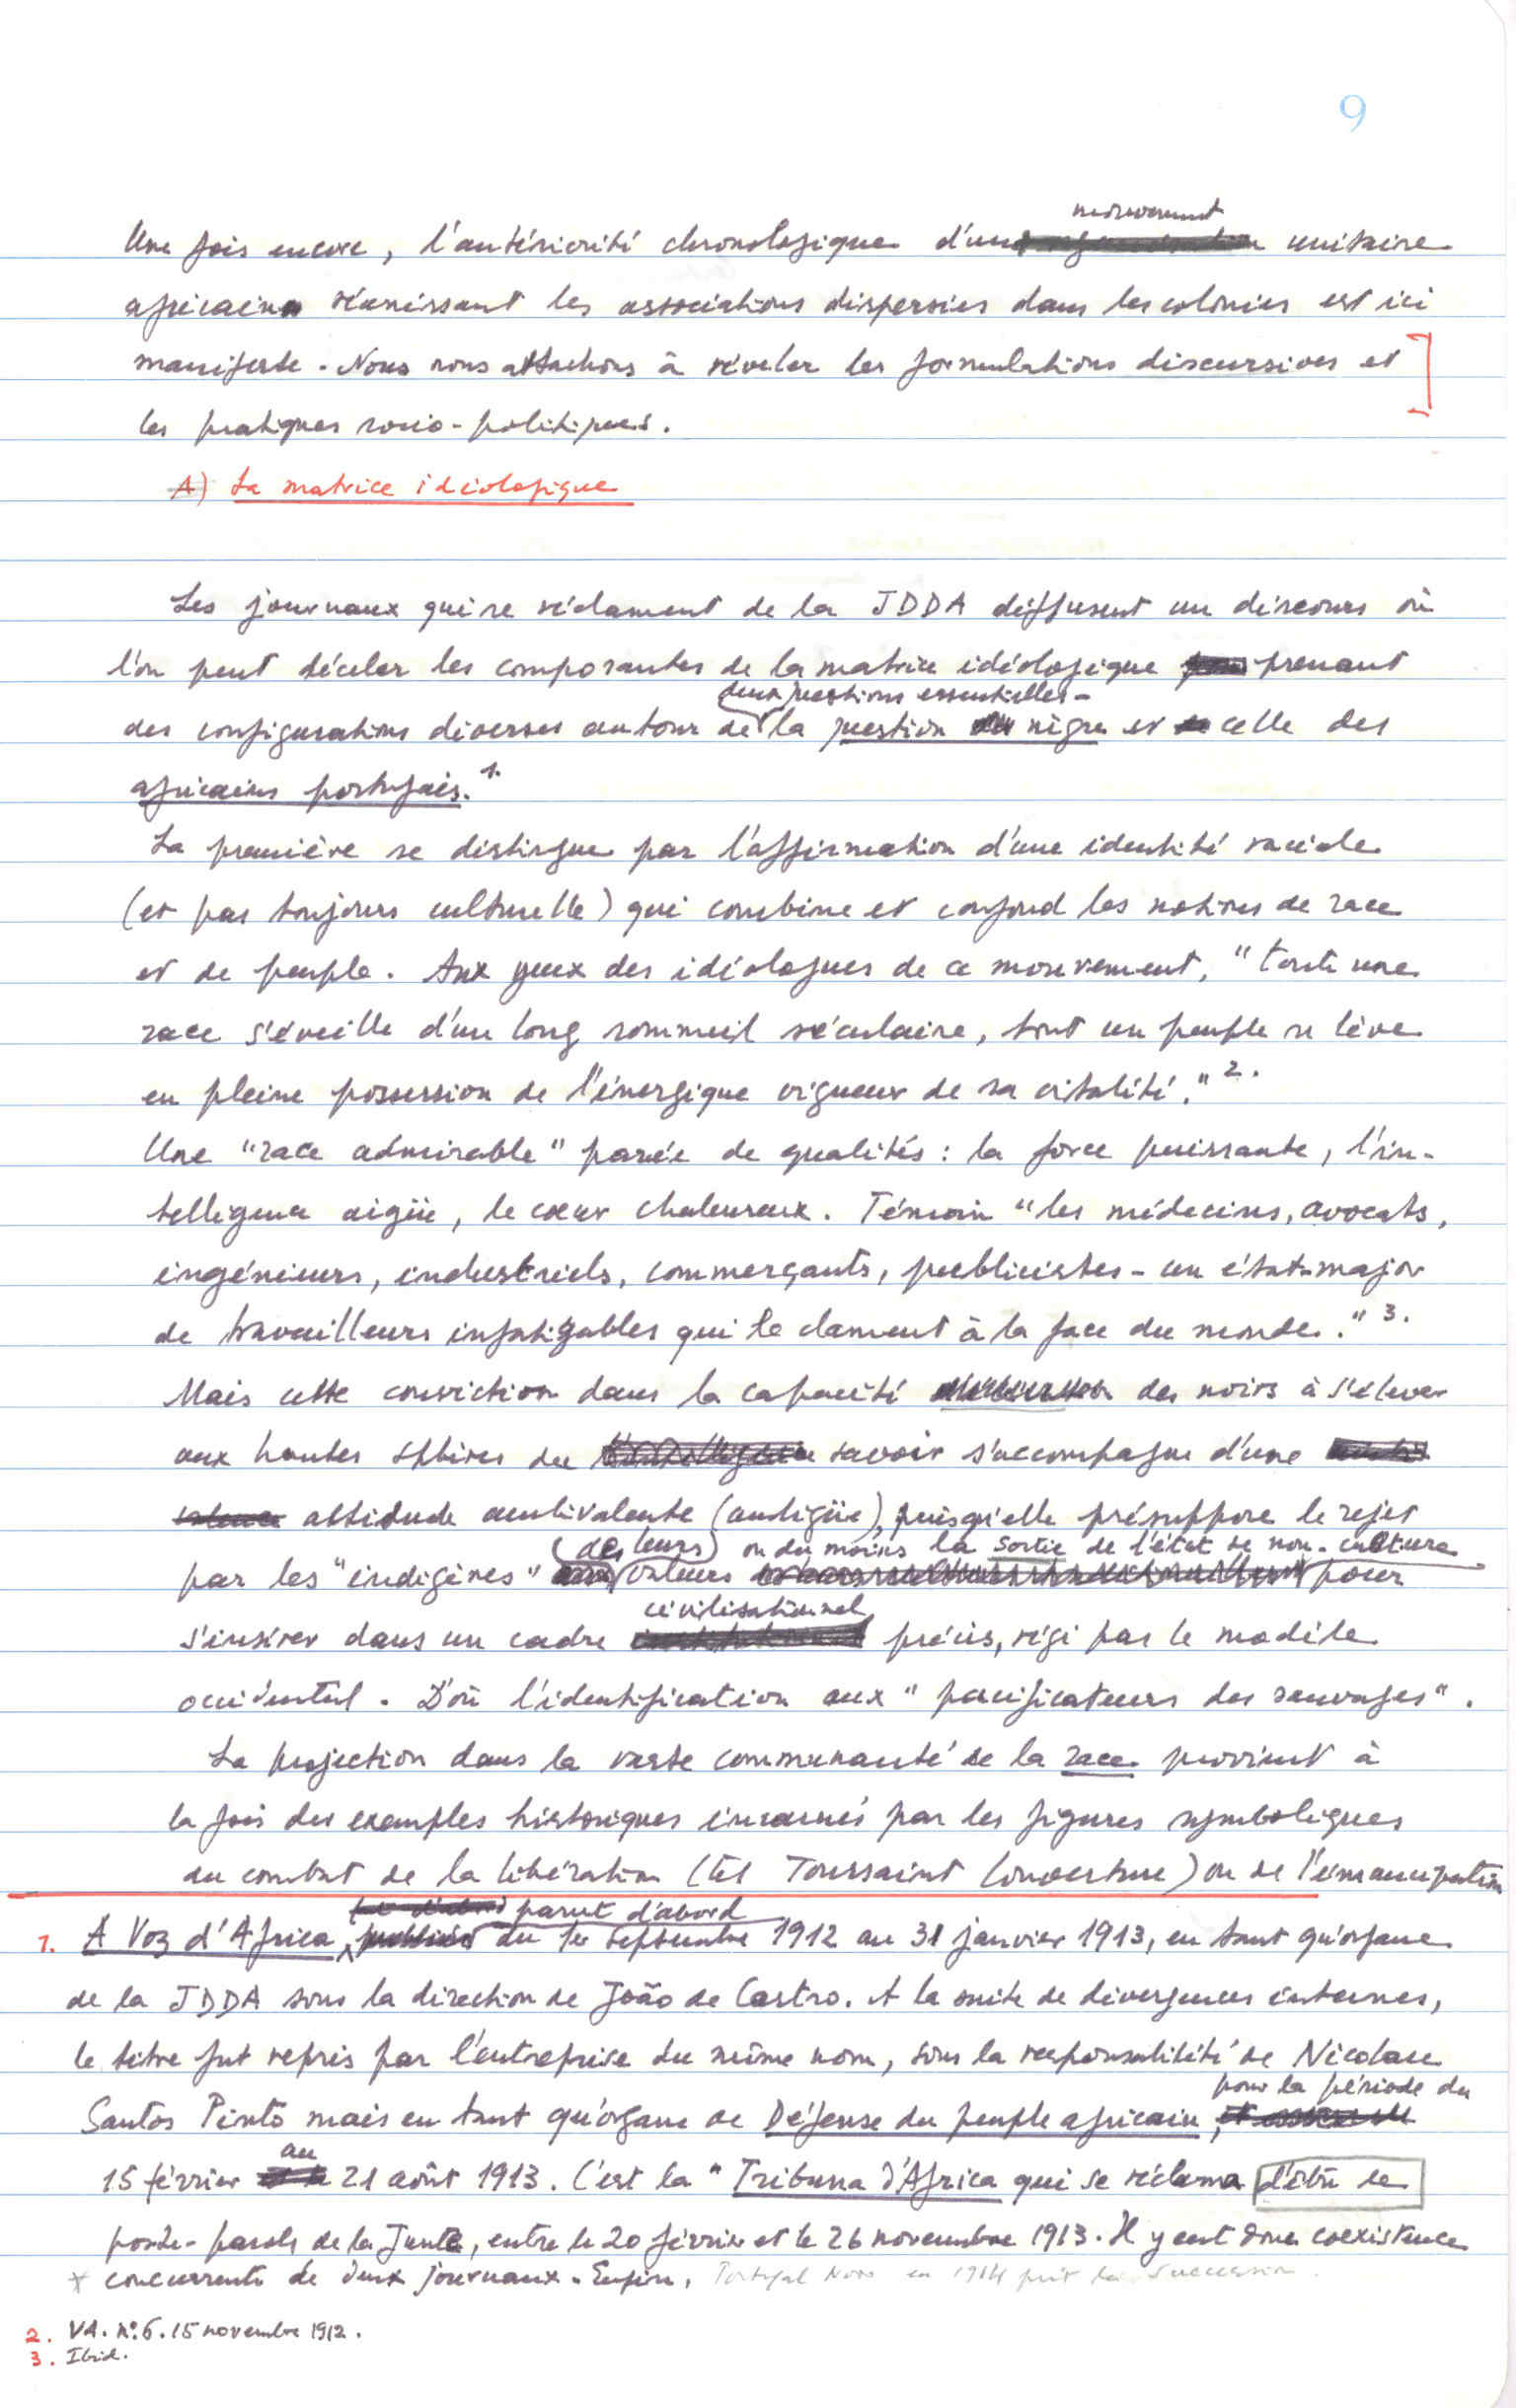 9
mouvement
Une fois encore, l'antériorité chronologique d'un unitaire
africain réunissant les associations dispersées dans les colonies est ici
manifeste. Nous nous attachons à révéler les formulations discursives et
les pratiques socio-politiques.
A) La matrice idéologique
Les journaux qui se réclament de la JDDA diffusent un discours où
l'on peut déceler les composantes de la matrice idéologique prenant
deux questions essentielles -
des configurations diverses autour de la question nègre et celle des
africains portugais. 1.
La première se distingue par l'affirmation d'une identité raciale
(et pas toujours culturelle) qui combine et confond les notions de race
et de peuple. Aux yeux des idéologues de ce mouvement, "toute une
race s'éveille d'un long sommeil séculaire, tout un peuple se lève
en pleine possession de l'énergique vigueur de sa vitalité." 2.
Une "race admirable" parée de qualités : la force puissante, l'in-
telligence aigüe, le cœur chaleureux. Témoin "les médecins, avocats,
ingénieurs, industriels, commerçants, publicistes - un état-major
de travailleurs infatigables qui le clament à la face du monde." 3.
Mais cette conviction dans la capacité des noirs à s'élever
aux hautes sphères du savoir s'accompagne d'une
attitude ambivalente (ambigüe), puisqu'elle présuppose le rejet
(des leurs) ou du moins la sortie de l'état de non-culture
par les "indigènes" valeurs pour
civilisationnel
s'insérer dans un cadre précis, régi par le modèle
occidental. D'où l'identification aux "pacificateurs des sauvages".
La projection dans la vaste communauté de la race provient à
la fois des exemples historiques incarnés par les figures symboliques
du combat de la libération (tel Toussaint Louverture) ou de l'émancipation
parut d'abord
1. A Voz d'Africa, du 1er septembre 1912 au 31 janvier 1913, en tant qu'organe
de la JDDA sous la direction de João de Castro. A la suite de divergences internes,
le titre fut repris par l'entreprise du même nom, sous la responsabilité de Nicolau
pour la période du
Santos Pinto mais en tant qu'organe de Défense du peuple africain,
au
15 février 21 août 1913. C'est la "Tribuna d'Africa qui se réclama d'être le
porte-parole de la Junta, entre le 20 février et le 26 novembre 1913. Il y eut donc coexistence
* concurrente de deux journaux. Enfin, Portugal Novo en 1914 prit la succession.
2. VA. nº 6. 15 novembre 1912.
3. Ibid.